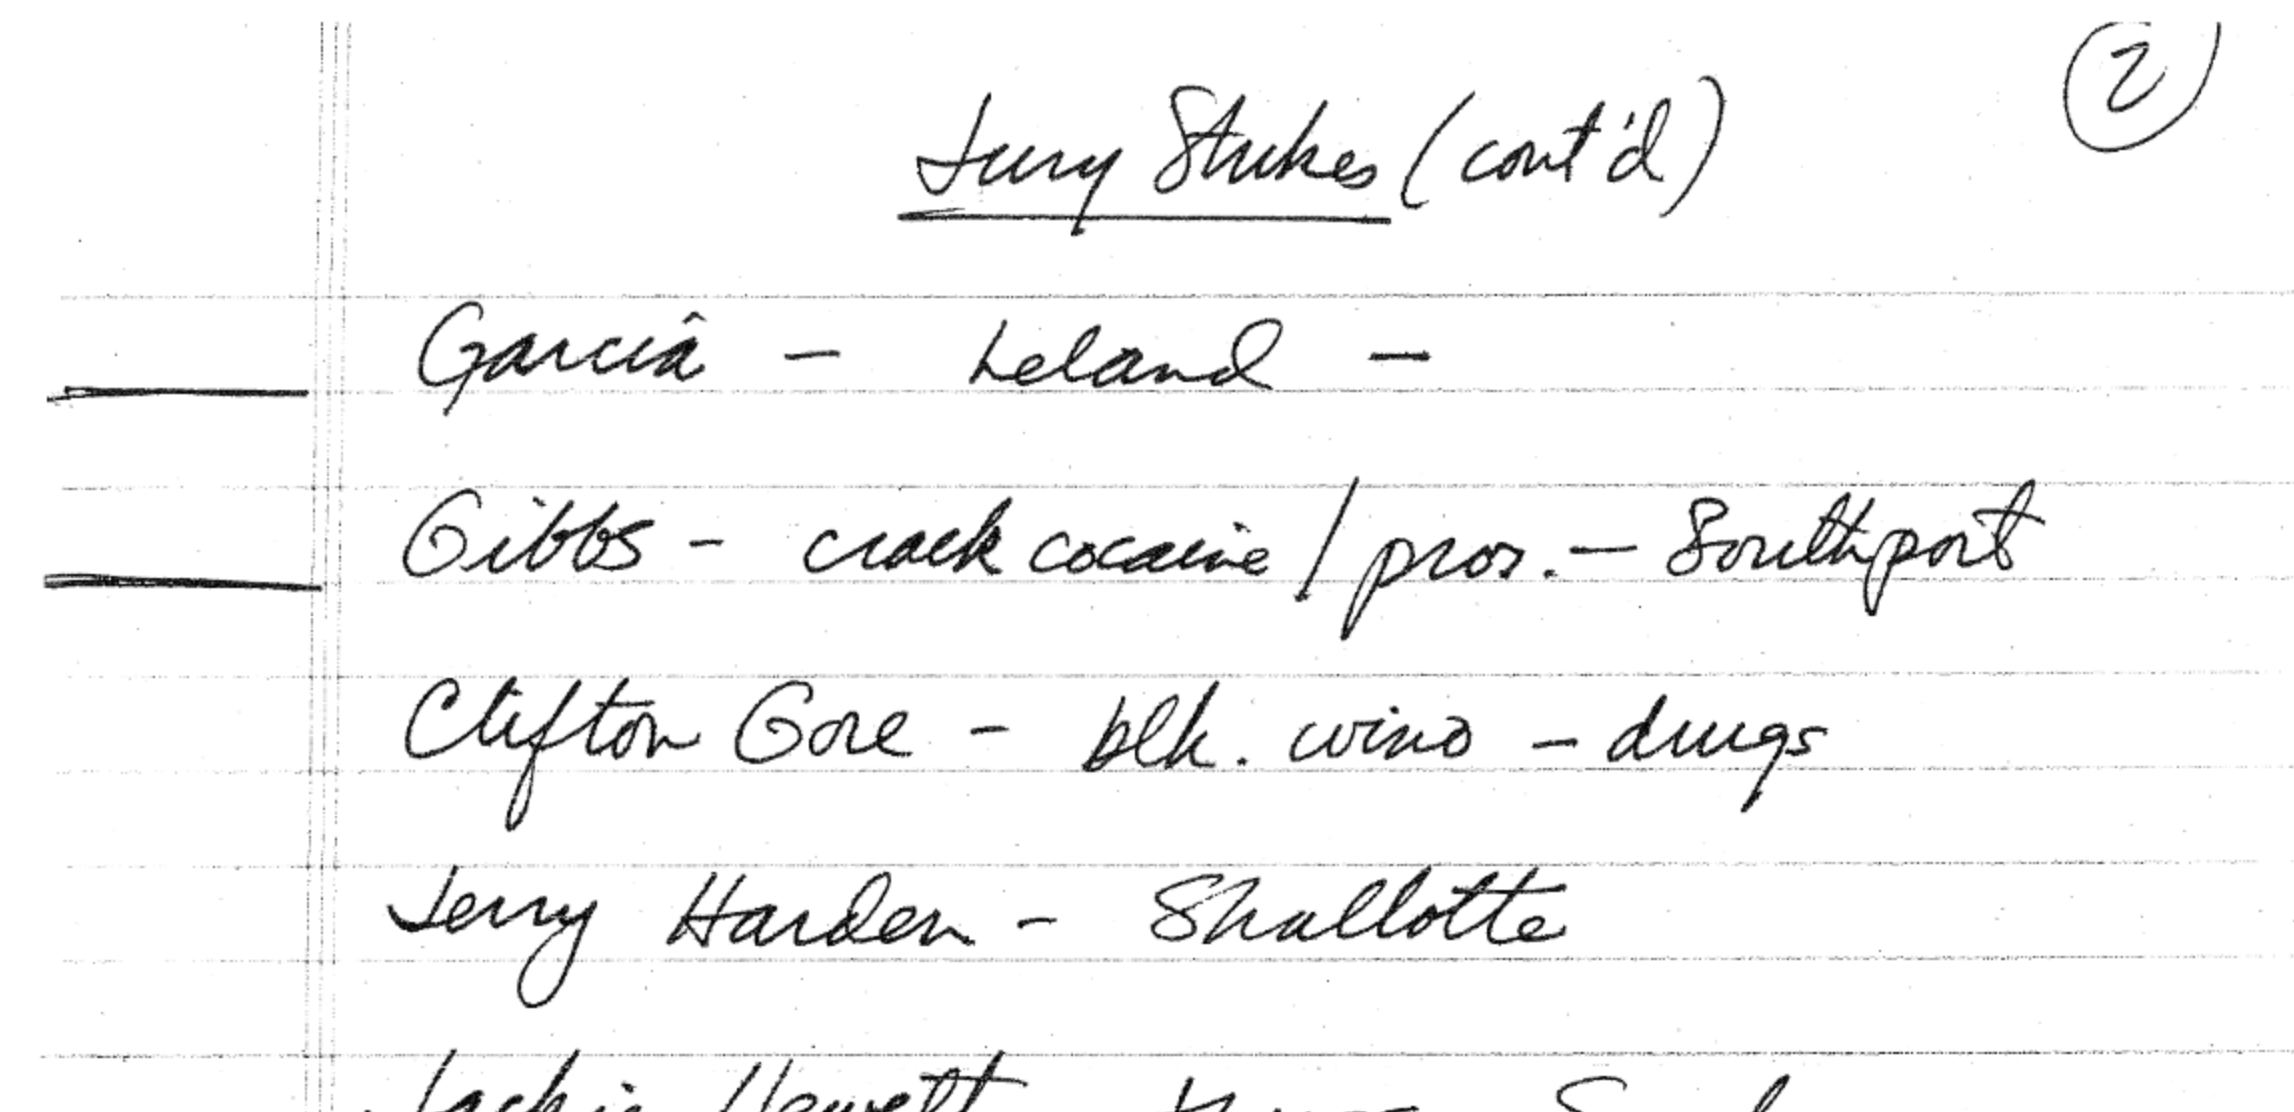 2
Jury Strikes (cont'd)
Garcia - Leland -
Gibbs - crack cocaine / pros. - Southport
Clifton Gore - blk. wino - drugs
Jerry Harden - Shallotte
Jackie Hewett